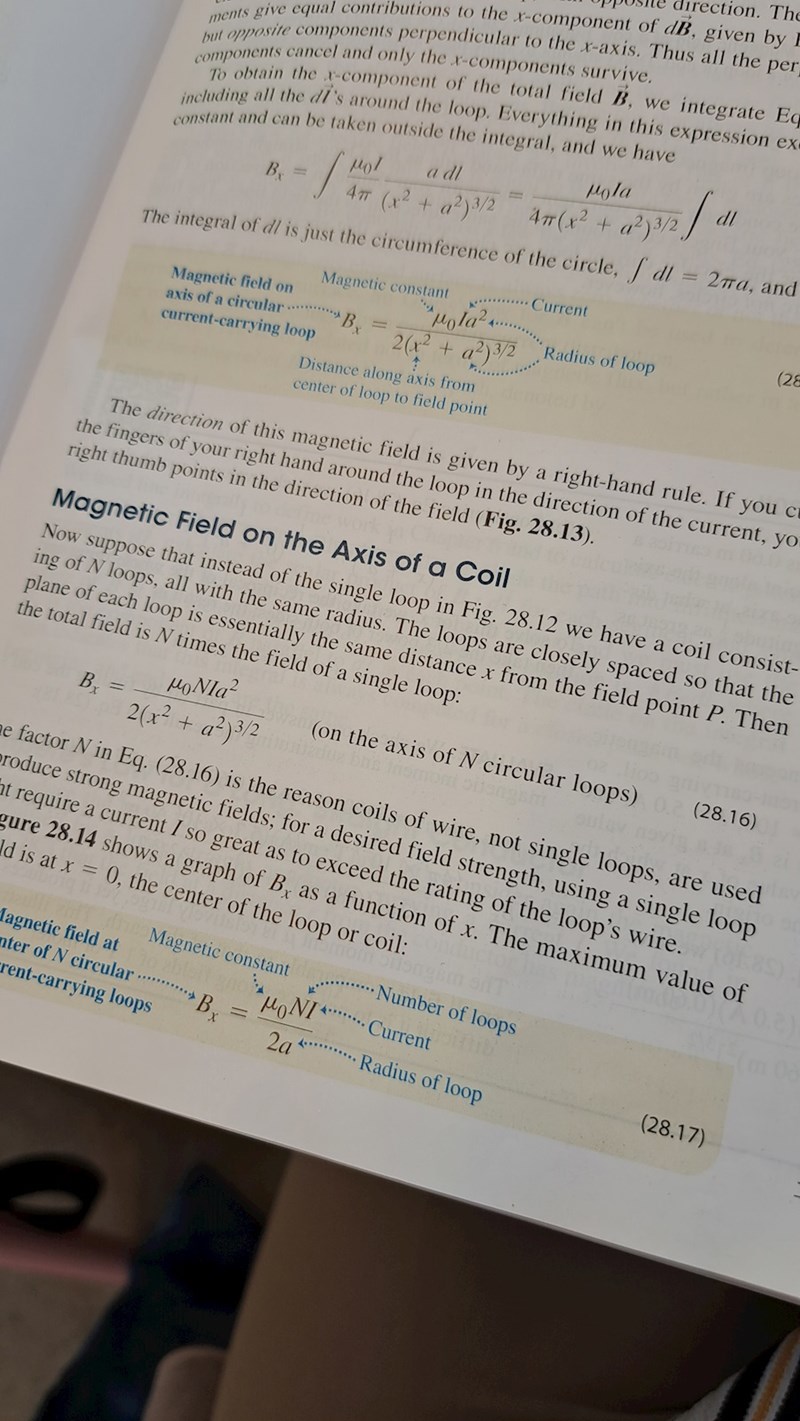 opposite direction. The
ments give equal contributions to the x-component of dB⃗, given by
but opposite components perpendicular to the x-axis. Thus all the
components cancel and only the x-components survive.
To obtain the x-component of the total field B⃗, we integrate
including all the dl⃗'s around the loop. Everything in this expression
constant and can be taken outside the integral, and we have
Bₓ = ∫ μ₀I/4π a dl/(x² + a²)^3/2 = μ₀Ia/4π(x² + a²)^3/2 ∫ dl
The integral of dl is just the circumference of the circle, ∫ dl = 2πa, and
Magnetic field on
axis of a circular
current-carrying loop
Magnetic constant
Current
Bₓ = μ₀Ia²/2(x² + a²)^3/2
Radius of loop
Distance along axis from
center of loop to field point
(28
The direction of this magnetic field is given by a right-hand rule. If you
the fingers of your right hand around the loop in the direction of the current,
right thumb points in the direction of the field (Fig. 28.13).
Magnetic Field on the Axis of a Coil
Now suppose that instead of the single loop in Fig. 28.12 we have a coil consist-
ing of N loops, all with the same radius. The loops are closely spaced so that the
plane of each loop is essentially the same distance x from the field point P. Then
the total field is N times the field of a single loop:
Bₓ = μ₀NIa²/2(x² + a²)^3/2 (on the axis of N circular loops) (28.16)
factor N in Eq. (28.16) is the reason coils of wire, not single loops, are used
produce strong magnetic fields; for a desired field strength, using a single loop
require a current I so great as to exceed the rating of the loop's wire.
gure 28.14 shows a graph of Bₓ as a function of x. The maximum value of
ld is at x = 0, the center of the loop or coil:
Magnetic field at
nter of N circular
rent-carrying loops
Magnetic constant
Number of loops
Bₓ = μ₀NI/2a
Current
Radius of loop
(28.17)